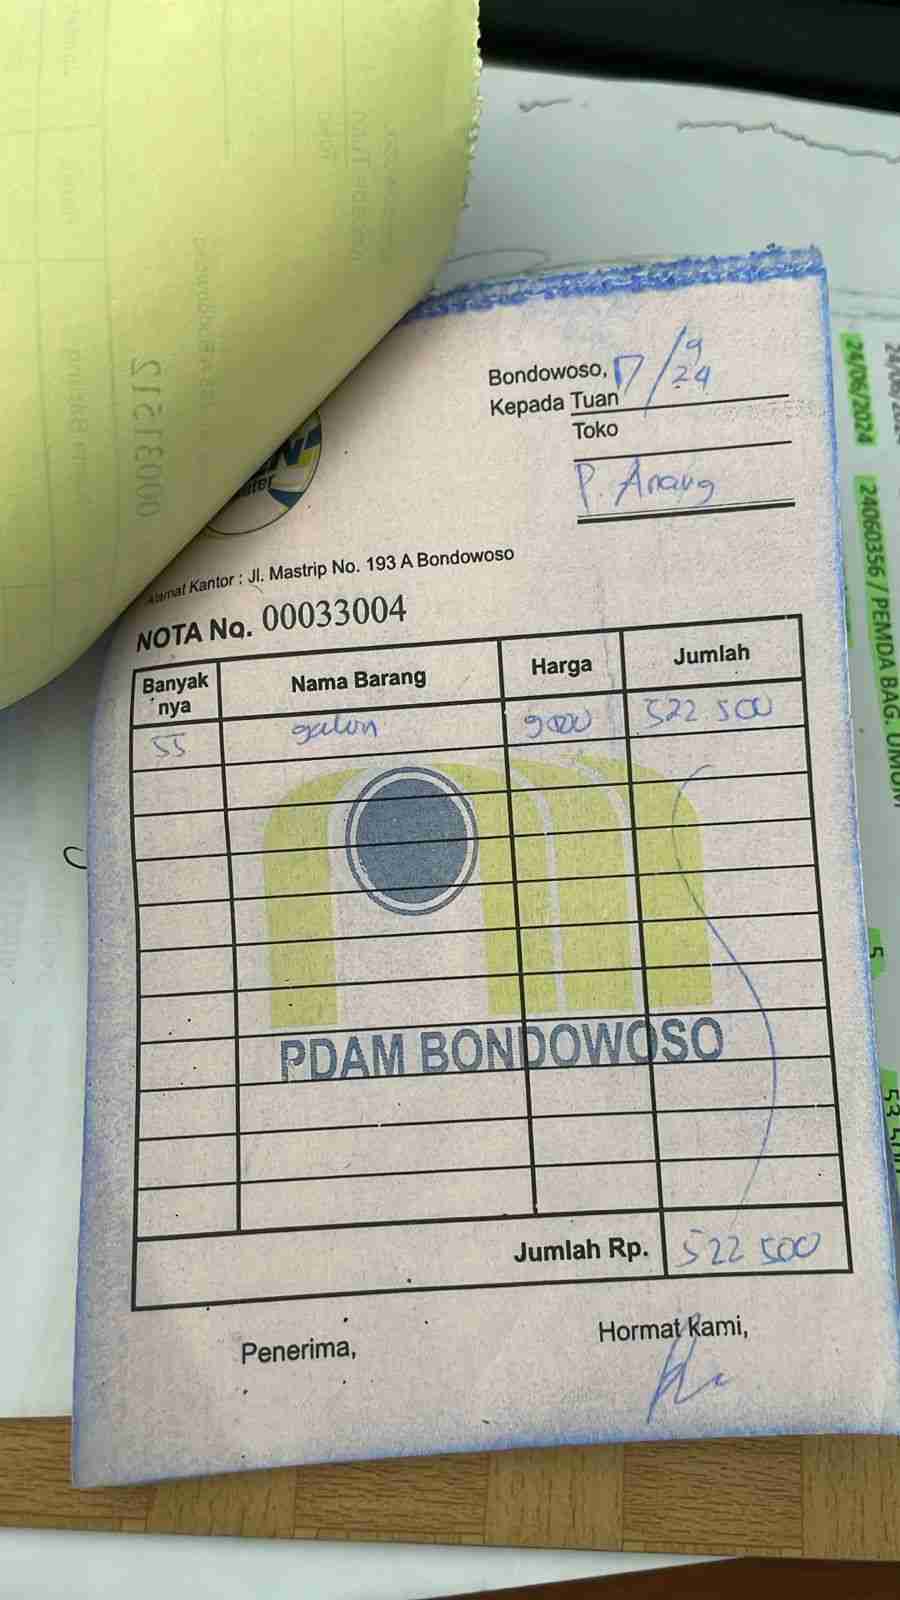 00031512
Bondowoso, 17/9/24
Kepada Tuan
Toko
P. Anang
Alamat Kantor : Jl. Mastrip No. 193 A Bondowoso
NOTA No. 00033004
Banyak nya Nama Barang Harga Jumlah
55 galon 9500 522 500
PDAM BONDOWOSO
Jumlah Rp. 522 500
Penerima, Hormat Kami,
24/06/2024
24060356 / PEMDA BAG. UMUM
5